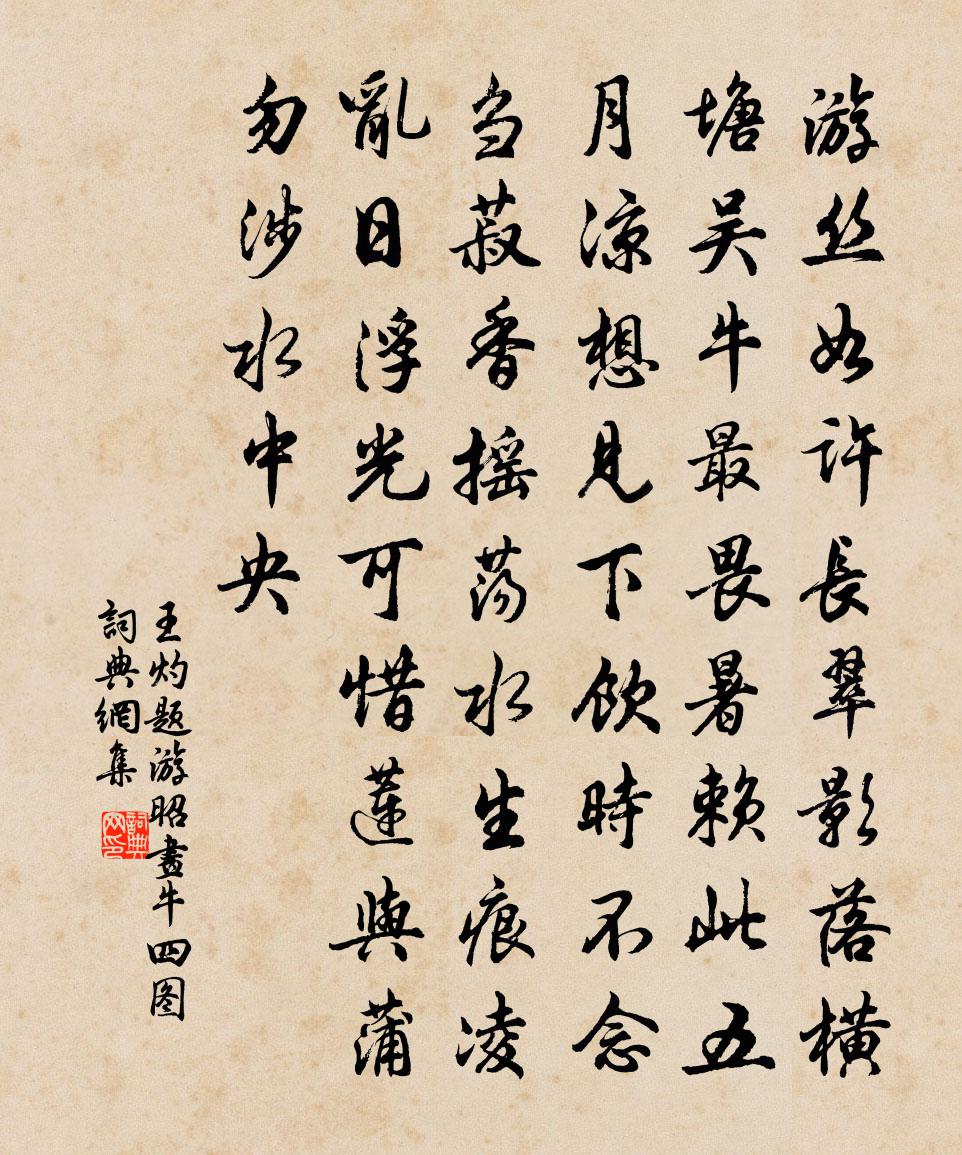 游丝如许長翠影落横
塘吴牛最畏暑赖此五
月凉想见下饮時不念
刍菽香摇荡水生痕凌
亂日浮光可惜莲與蒲
勿涉水中央
王灼题游昭畫牛四图
詞典網集
詞典网印